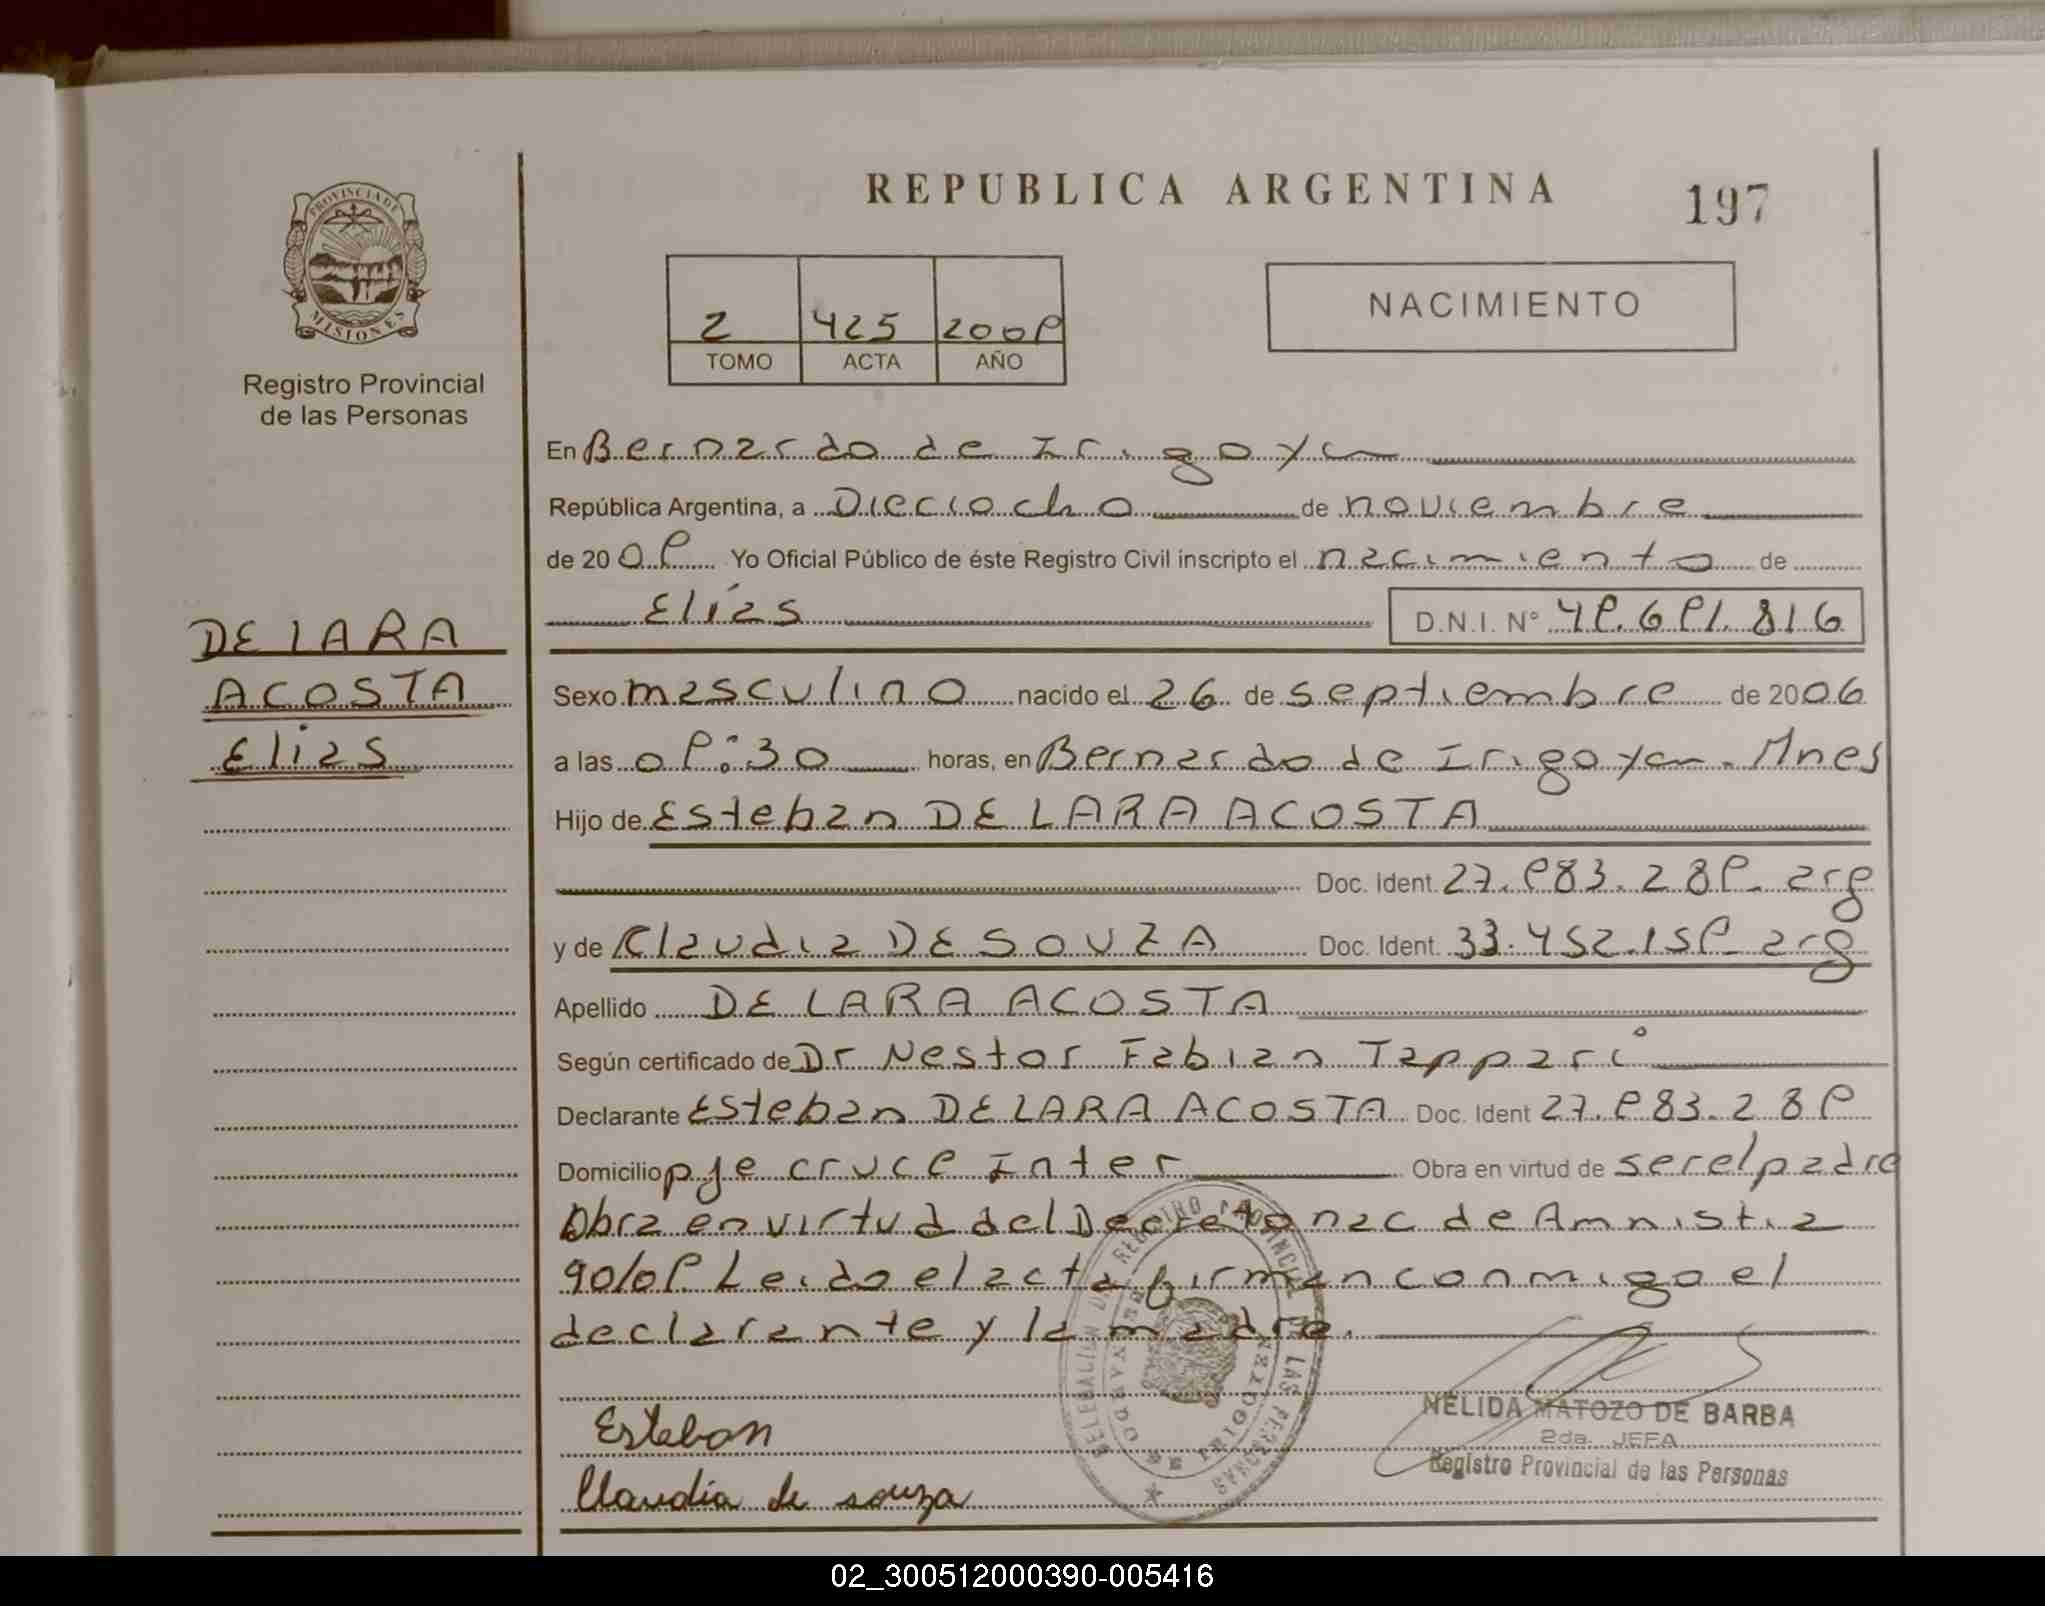 REPUBLICA ARGENTINA
197
PROVINCIA DE
MISIONES
Registro Provincial
de las Personas
2 425 2009
TOMO ACTA AÑO
NACIMIENTO
En Bernardo de Irigoyen
República Argentina, a Dieciocho de noviembre
de 2009 Yo Oficial Público de éste Registro Civil inscripto el nacimiento de
Elías D.N.I. N° 49.691.816
DE LARA
ACOSTA
Elias
Sexo masculino nacido el 26 de septiembre de 2006
a las 09:30 horas, en Bernardo de Irigoyen. Mnes
Hijo de Esteban DE LARA ACOSTA
Doc. Ident. 27.983.289 arg
y de Claudia DE SOUZA Doc. Ident. 33.452.159 arg
Apellido DE LARA ACOSTA
Según certificado de Dr Nestor Fabian Tappari
Declarante Esteban DE LARA ACOSTA Doc. Ident 27.983.289
Domicilio pje cruce Inter Obra en virtud de ser el padre
Obra en virtud del Decreto nac de Amnistia
90/09 Leido el acta firman conmigo el
declarante y la madre.
Esteban
Claudia de souza
DELEGACION DEL REGISTRO PROVINCIAL DE LAS PERSONAS
BERNARDO DE IRIGOYEN
NELIDA MATOZO DE BARBA
2da. JEFA
Registro Provincial de las Personas
02_300512000390-005416